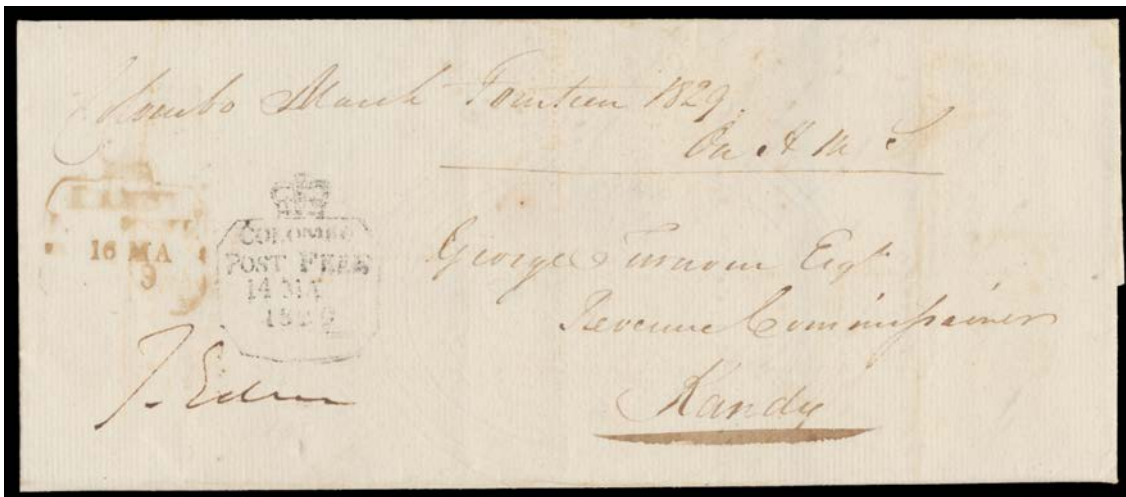 Colombo March Fourteen 1829.
On H M S
KANDY
16 MA
9
COLOMBO
POST FREE
14 MA
1829
George Turnour Esqr
Revenue Commissioner
Kandy